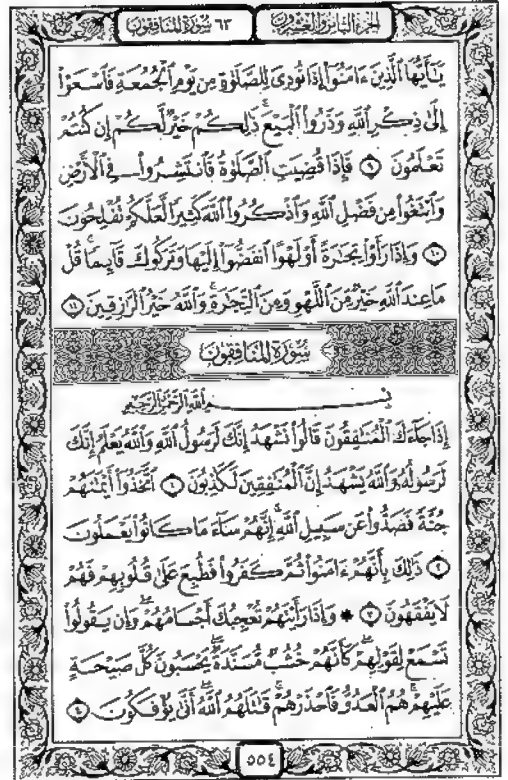 الجزء الثامن والعشرون
٦٣ سورة المنافقون
يَٰٓأَيُّهَا ٱلَّذِينَ ءَامَنُوٓاْ إِذَا نُودِىَ لِلصَّلَوٰةِ مِن يَوْمِ ٱلْجُمُعَةِ فَٱسْعَوْاْ
إِلَىٰ ذِكْرِ ٱللَّهِ وَذَرُواْ ٱلْبَيْعَ ۚ ذَٰلِكُمْ خَيْرٌ لَّكُمْ إِن كُنتُمْ
تَعْلَمُونَ ٩ فَإِذَا قُضِيَتِ ٱلصَّلَوٰةُ فَٱنتَشِرُواْ فِى ٱلْأَرْضِ
وَٱبْتَغُواْ مِن فَضْلِ ٱللَّهِ وَٱذْكُرُواْ ٱللَّهَ كَثِيرًا لَّعَلَّكُمْ تُفْلِحُونَ
١٠ وَإِذَا رَأَوْاْ تِجَٰرَةً أَوْ لَهْوًا ٱنفَضُّوٓاْ إِلَيْهَا وَتَرَكُوكَ قَآئِمًا ۚ قُلْ
مَا عِندَ ٱللَّهِ خَيْرٌ مِّنَ ٱللَّهْوِ وَمِنَ ٱلتِّجَٰرَةِ ۚ وَٱللَّهُ خَيْرُ ٱلرَّٰزِقِينَ ١١
سُورَةُ المُنَافِقُونَ
بِسْمِ ٱللَّهِ ٱلرَّحْمَٰنِ ٱلرَّحِيمِ
إِذَا جَآءَكَ ٱلْمُنَٰفِقُونَ قَالُواْ نَشْهَدُ إِنَّكَ لَرَسُولُ ٱللَّهِ وَٱللَّهُ يَعْلَمُ إِنَّكَ
لَرَسُولُهُۥ وَٱللَّهُ يَشْهَدُ إِنَّ ٱلْمُنَٰفِقِينَ لَكَٰذِبُونَ ١ ٱتَّخَذُوٓاْ أَيْمَٰنَهُمْ
جُنَّةً فَصَدُّواْ عَن سَبِيلِ ٱللَّهِ ۚ إِنَّهُمْ سَآءَ مَا كَانُواْ يَعْمَلُونَ
٢ ذَٰلِكَ بِأَنَّهُمْ ءَامَنُواْ ثُمَّ كَفَرُواْ فَطُبِعَ عَلَىٰ قُلُوبِهِمْ فَهُمْ
لَا يَفْقَهُونَ ٣ * وَإِذَا رَأَيْتَهُمْ تُعْجِبُكَ أَجْسَامُهُمْ ۖ وَإِن يَقُولُواْ
تَسْمَعْ لِقَوْلِهِمْ ۖ كَأَنَّهُمْ خُشُبٌ مُّسَنَّدَةٌ ۖ يَحْسَبُونَ كُلَّ صَيْحَةٍ
عَلَيْهِمْ ۚ هُمُ ٱلْعَدُوُّ فَٱحْذَرْهُمْ ۚ قَٰتَلَهُمُ ٱللَّهُ ۖ أَنَّىٰ يُؤْفَكُونَ ٤
٥٥٤